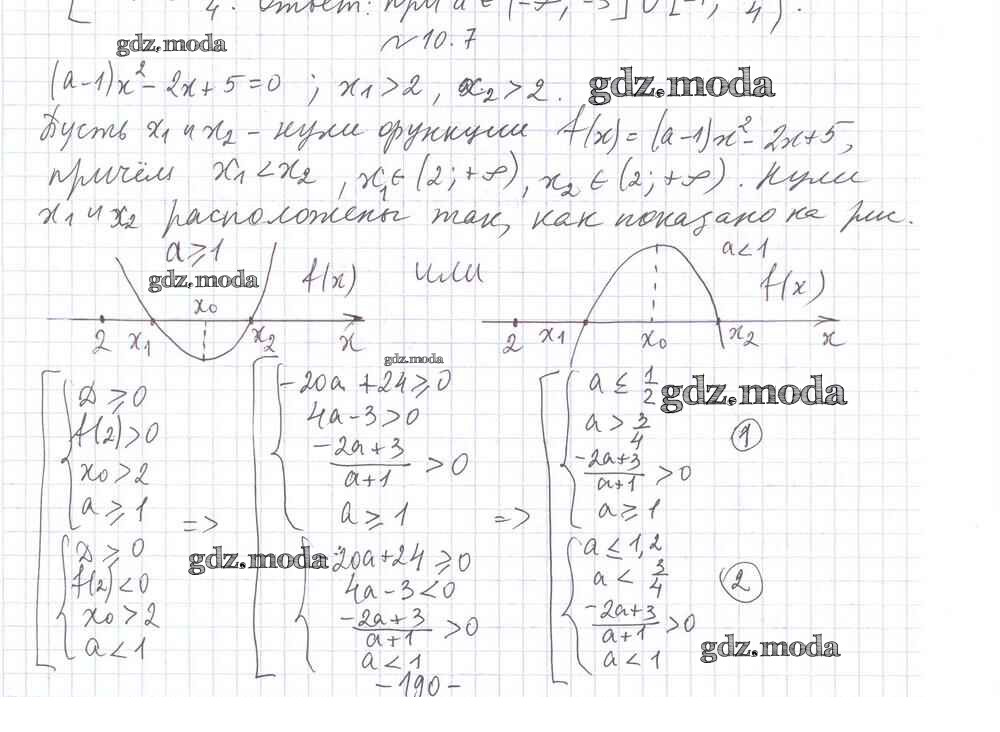 4. Ответ: при a ∈ (-∞; -3] ∪ [-1; 4).
№10.7
gdz.moda
(a-1)x² - 2x + 5 = 0 ; x₁ > 2 , x₂ > 2 . gdz.moda
Пусть x₁ и x₂ - нули функции f(x) = (a-1)x² - 2x + 5,
причём x₁ < x₂ , x₁ ∈ (2; +∞), x₂ ∈ (2; +∞). Нули
x₁ и x₂ расположены так, как показано на рис.
a ≥ 1
gdz.moda
f(x) или
a < 1
f(x)
x₀
2 x₁ x₂ x
2 x₁ x₀ x₂ x
gdz.moda
D ≥ 0
f(2) > 0
x₀ > 2
a ≥ 1
=>
D ≥ 0
f(2) < 0
x₀ > 2
a < 1
-20a + 24 ≥ 0
4a - 3 > 0
(-2a + 3)/(a + 1) > 0
a ≥ 1
=>
gdz.moda
-20a + 24 ≥ 0
4a - 3 < 0
(-2a + 3)/(a + 1) > 0
a < 1
a ≤ 1/2
gdz.moda
a > 3/4
(-2a + 3)/(a + 1) > 0
a ≥ 1
1
a ≤ 1,2
a < 3/4
(-2a + 3)/(a + 1) > 0
a < 1
2
gdz.moda
-190-